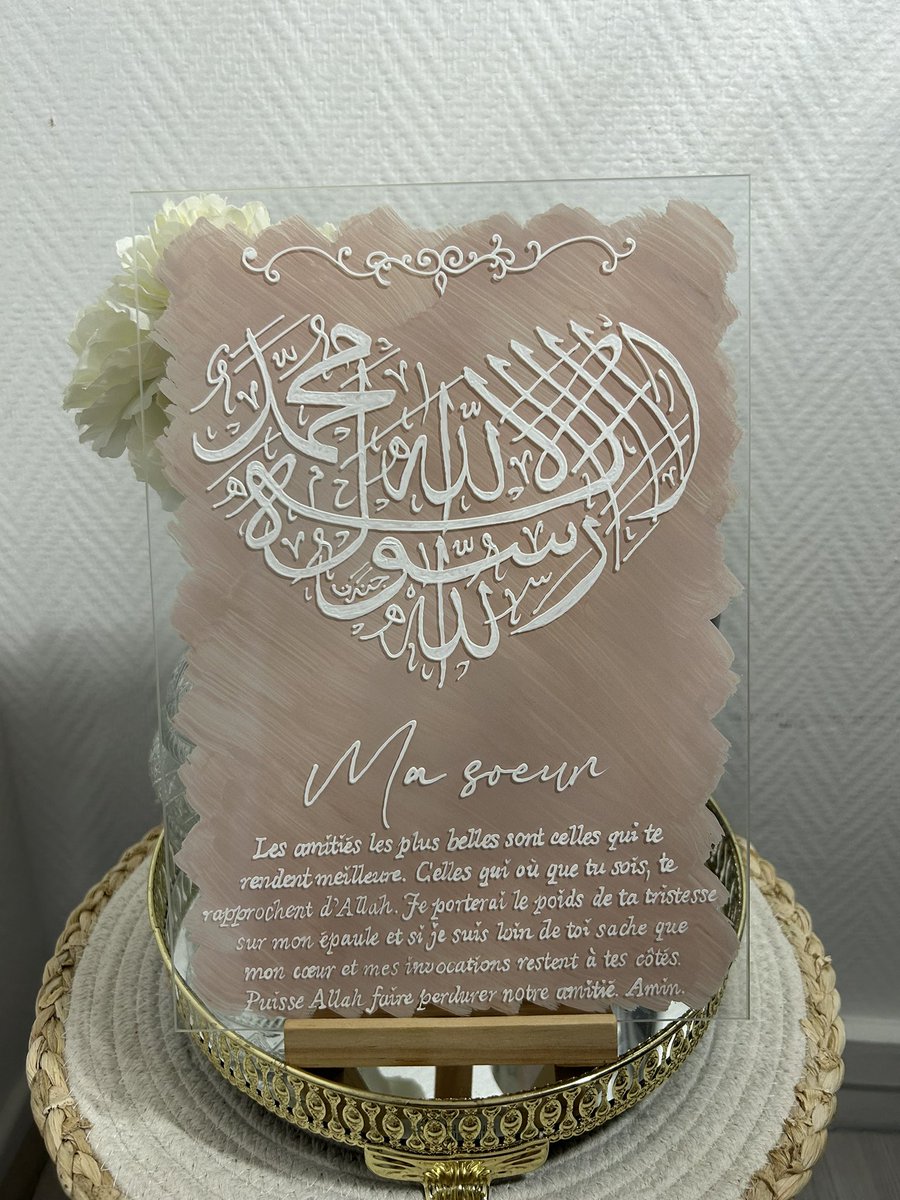 لا إله إلا الله
محمد رسول الله
Ma soeur
Les amitiés les plus belles sont celles qui te
rendent meilleure. Celles qui où que tu sois, te
rapprochent d'Allah. Je porterai le poids de ta tristesse
sur mon épaule et si je suis loin de toi sache que
mon cœur et mes invocations restent à tes côtés.
Puisse Allah faire perdurer notre amitié. Amin.